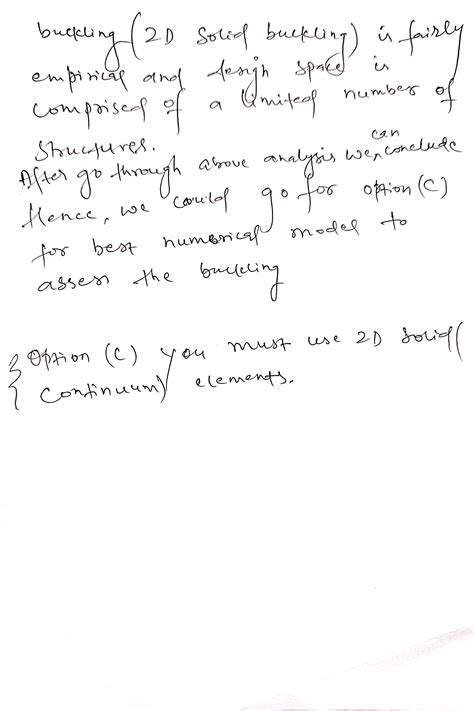 buckling (2D Solid buckling) is fairly
empirical and design space is
comprised of a limited number of
structures.
After go through above analysis we can conclude
Hence, we could go for option (C)
for best numerical model to
assess the buckling
Option (C) you must use 2D Solid (
Continuum) elements.